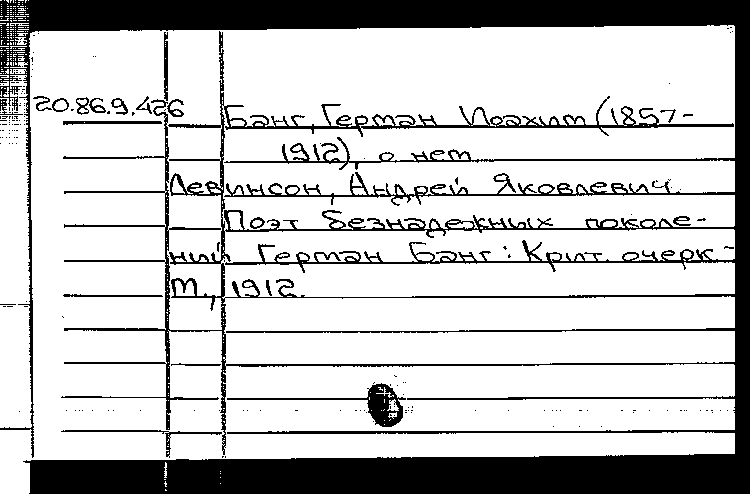 20.86.9.426 Банг, Герман Иоахим (1857-
1912), о нем
Левинсон, Андрей Яковлевич.
Поэт безнадежных поколе-
ний Герман Банг: Крит. очерк -
М., 1912.